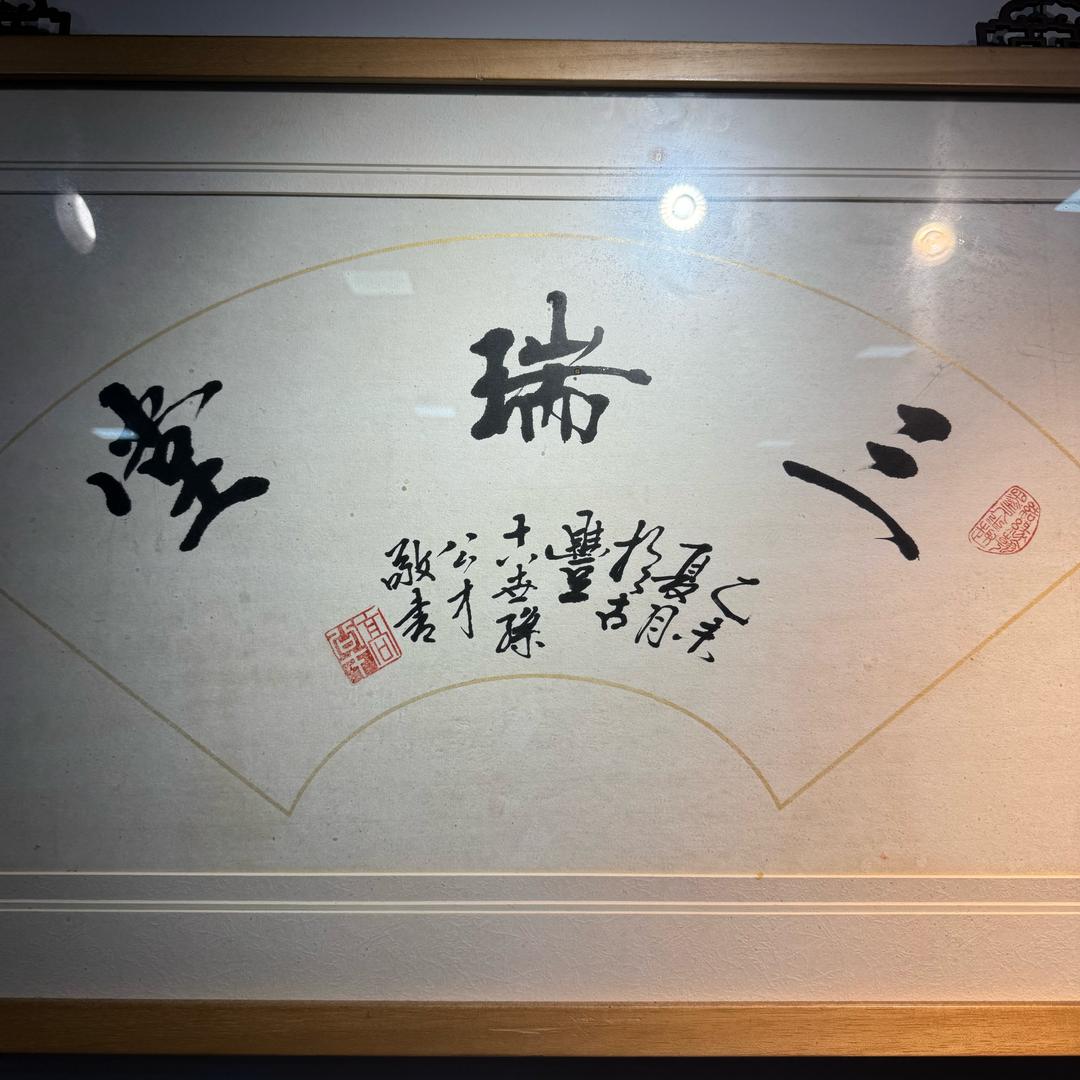 三瑞堂
乙未
夏月
於古
豐
十八世孫
公才
敬書